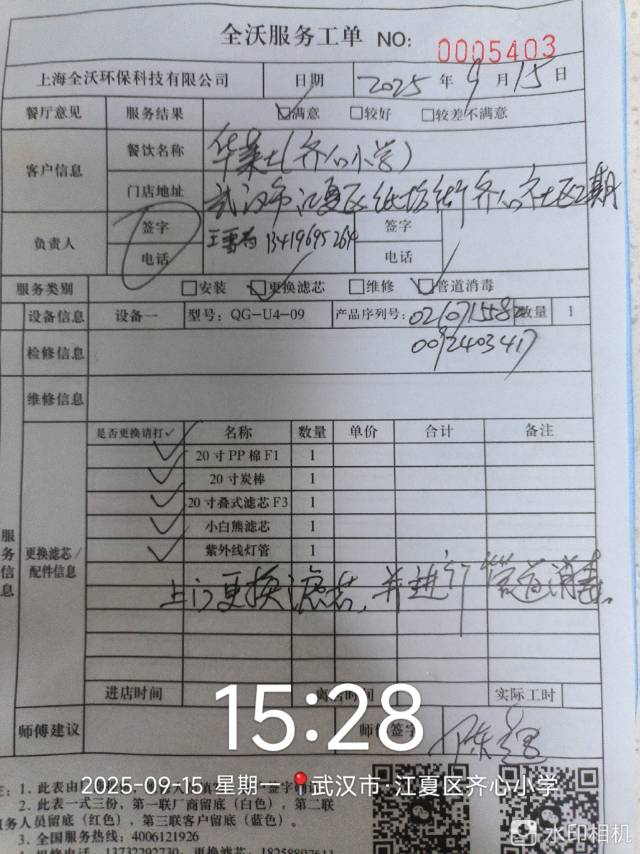 全沃服务工单 NO: 0005403
上海全沃环保科技有限公司 日期 2025 年 9 月 15 日
餐厅意见 服务结果 ☑满意 □较好 □较差不满意
客户信息 餐饮名称 华莱士(齐心小学)
门店地址 武汉市江夏区纸坊街齐心社区2期
负责人 签字 签字
电话 13419695264 电话
服务类别 □安装 ☑更换滤芯 □维修 ☑管道消毒
设备信息 设备一 型号: QG-U4-09 产品序列号: 021071558 数量 1
0092403417
检修信息
维修信息
是否更换请打✓ 名称 数量 单价 合计 备注
✓ 20寸PP棉F1 1
✓ 20寸炭棒 1
✓ 20寸叠式滤芯F3 1
✓ 小白熊滤芯 1
✓ 紫外线灯管 1
服务信息 更换滤芯/配件信息
上门更换滤芯,并进行管道消毒。
进店时间 离店时间 实际工时
15:28
师傅建议 师傅签字
2025-09-15 星期一 武汉市·江夏区齐心小学
2. 此表一式三份,第一联厂商留底(白色),第二联
务人员留底(红色),第三联客户留底(蓝色)。
3. 全国服务热线: 4006121926
水印相机